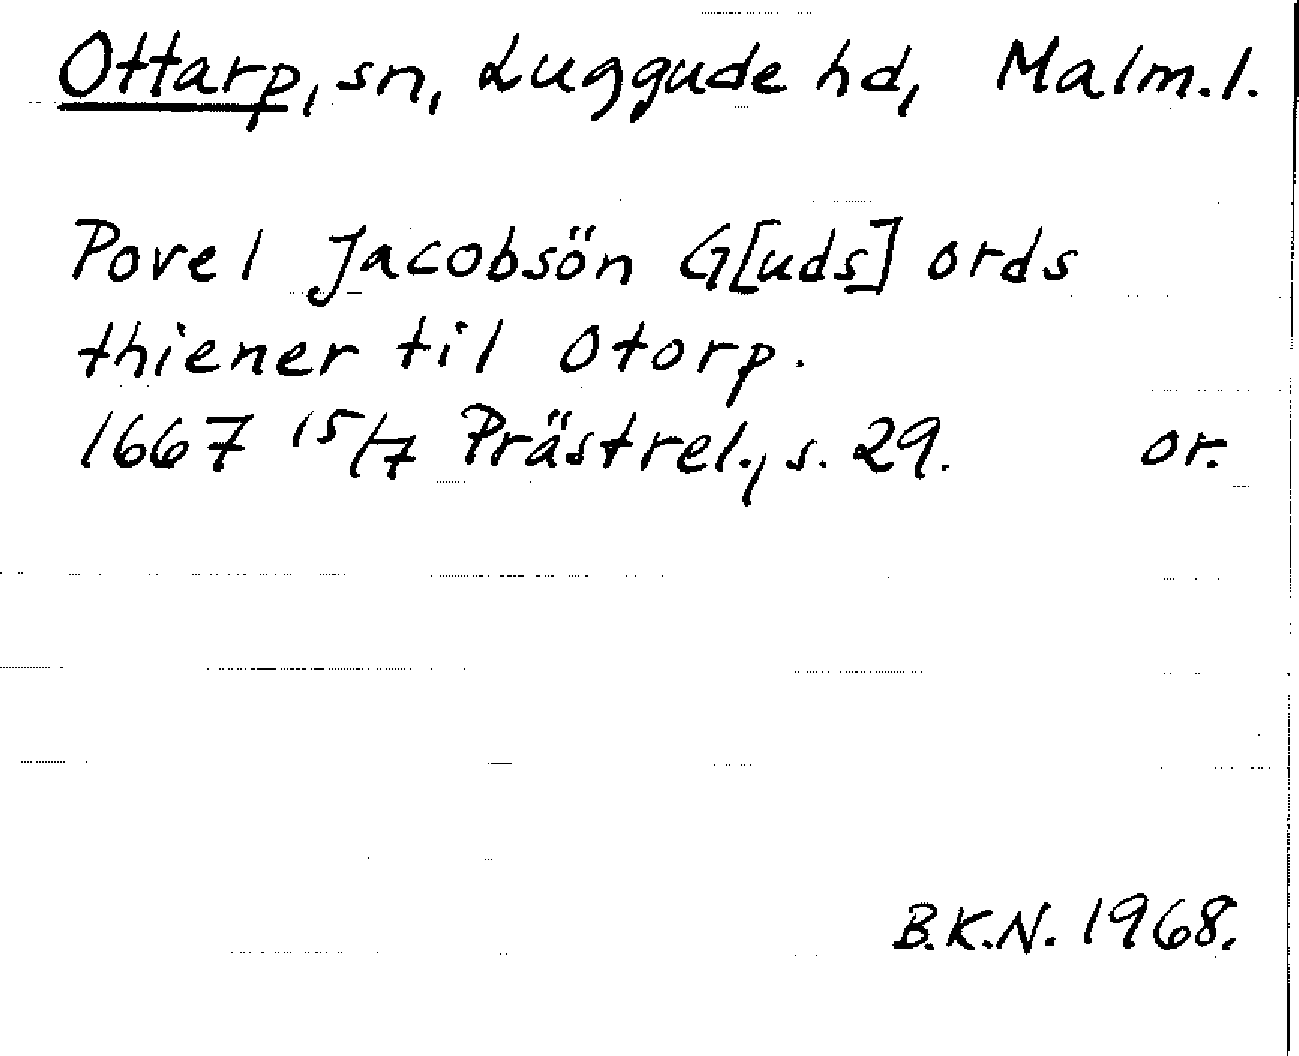 Ottarp, sn, Luggude hd, Malm.l.
Povel Jacobsön G[uds] ords
thiener til Otorp.
1667 15/7 Prästrel., s. 29. or.
B.K.N. 1968.